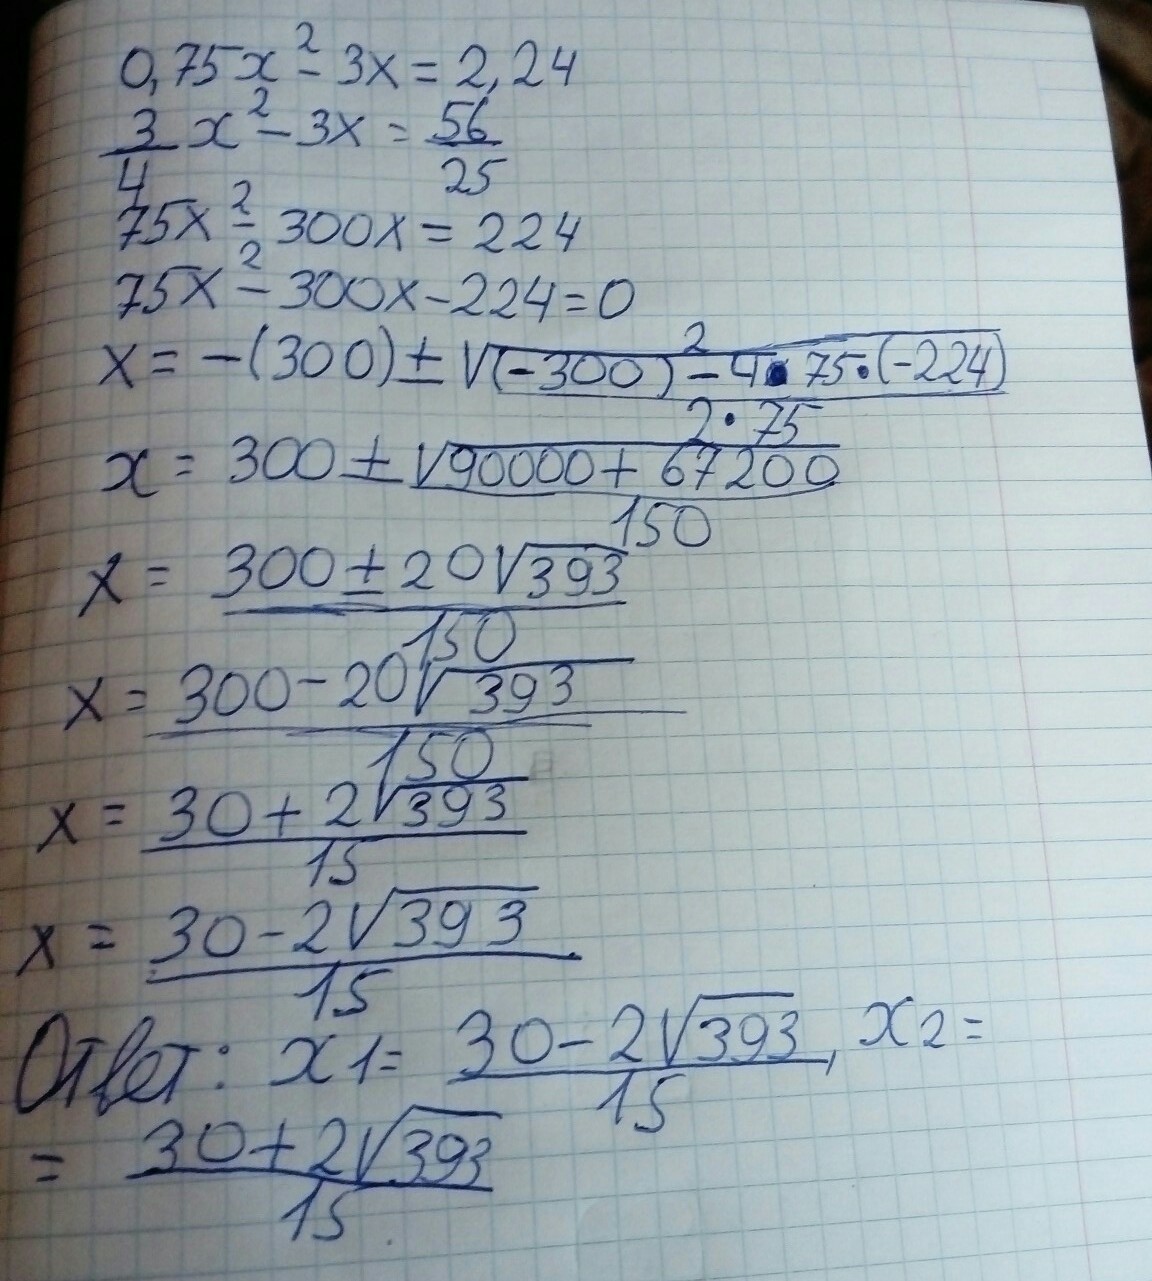 0,75x² - 3x = 2,24
3/4 x² - 3x = 56/25
75x² - 300x = 224
75x² - 300x - 224 = 0
x = -(300) ± √(-300)² - 4 · 75 · (-224)
2 · 75
x = 300 ± √90000 + 67200
150
x = 300 ± 20√393
150
x = 300 - 20√393
150
x = 30 + 2√393
15
x = 30 - 2√393
15
Ответ: x1 = 30 - 2√393 / 15, x2 =
= 30 + 2√393
15